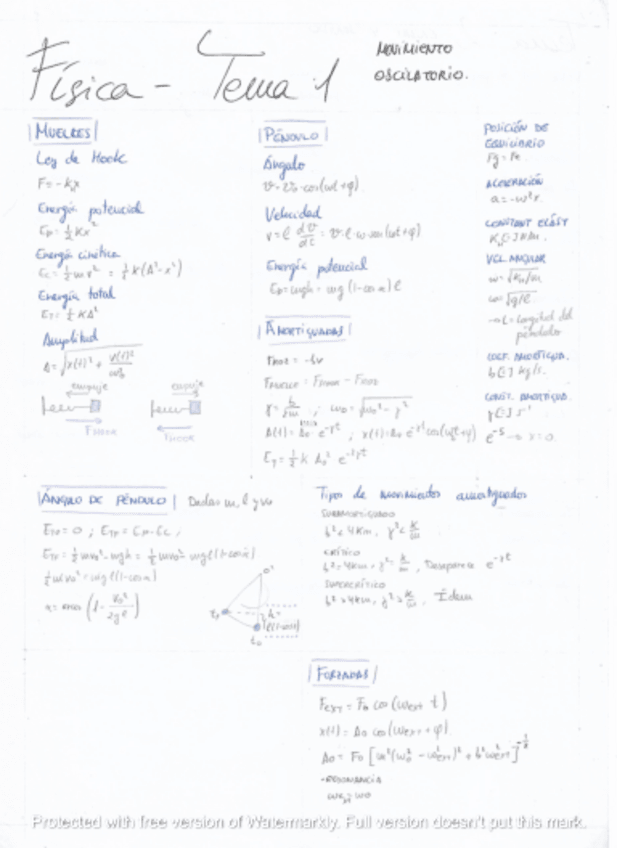 Física - Tema 1
MOVIMIENTO
OSCILATORIO.
MUELLES
Ley de Hook
F = -kx
Energía potencial
Ep = ½ Kx²
Energía cinética
Ec = ½ mv² = ½ K(A² - x²)
Energía total
ET = ½ KA²
Amplitud
A = √(x(t)² + v(t)²/ω0²)
empuje
empuje
FHOOK
FHOOK
PÉNDULO
Ángulo
Velocidad
Energía potencial
Ep = mgh = mg (1 - cos α) l
AMORTIGUADAS
γ = b/2m ; ω0 = √(ω0² - γ²)
ET = ½ K A0² e^-2γt
POSICIÓN DE
EQUILIBRIO
Fg = Fe
ACELERACIÓN
a = -ω²x.
CONSTANT ELÁST
VEL. ANGULAR
ω = √(K/m)
ω = √(g/l)
→ L = longitud del
péndulo
COEF. AMORTIGUA.
b [=] kg/s.
CONST. AMORTIGUA.
γ [=] s⁻¹
ÁNGULO DE PÉNDULO Dadas m, l y v0
½ mv0² = mgl(1 - cos α)
Tipos de movimientos amortiguados
SUBAMORTIGUADO
b² < 4Km, γ² < K/m
CRÍTICO
b² = 4Km, γ² = K/m, Desaparece e^-γt
SUPERCRÍTICO
b² > 4Km, γ² > K/m, Ídem
FORZADAS
FEXT = F0 cos (ωext t)
x(t) = A0 cos (ωext + φ)
A0 = F0 [m²(ω0² - ωext²)² + b²ωext²]^-½
- RESONANCIA
ωext = ω0
Protected with free version of Watermarkly. Full version doesn't put this mark.